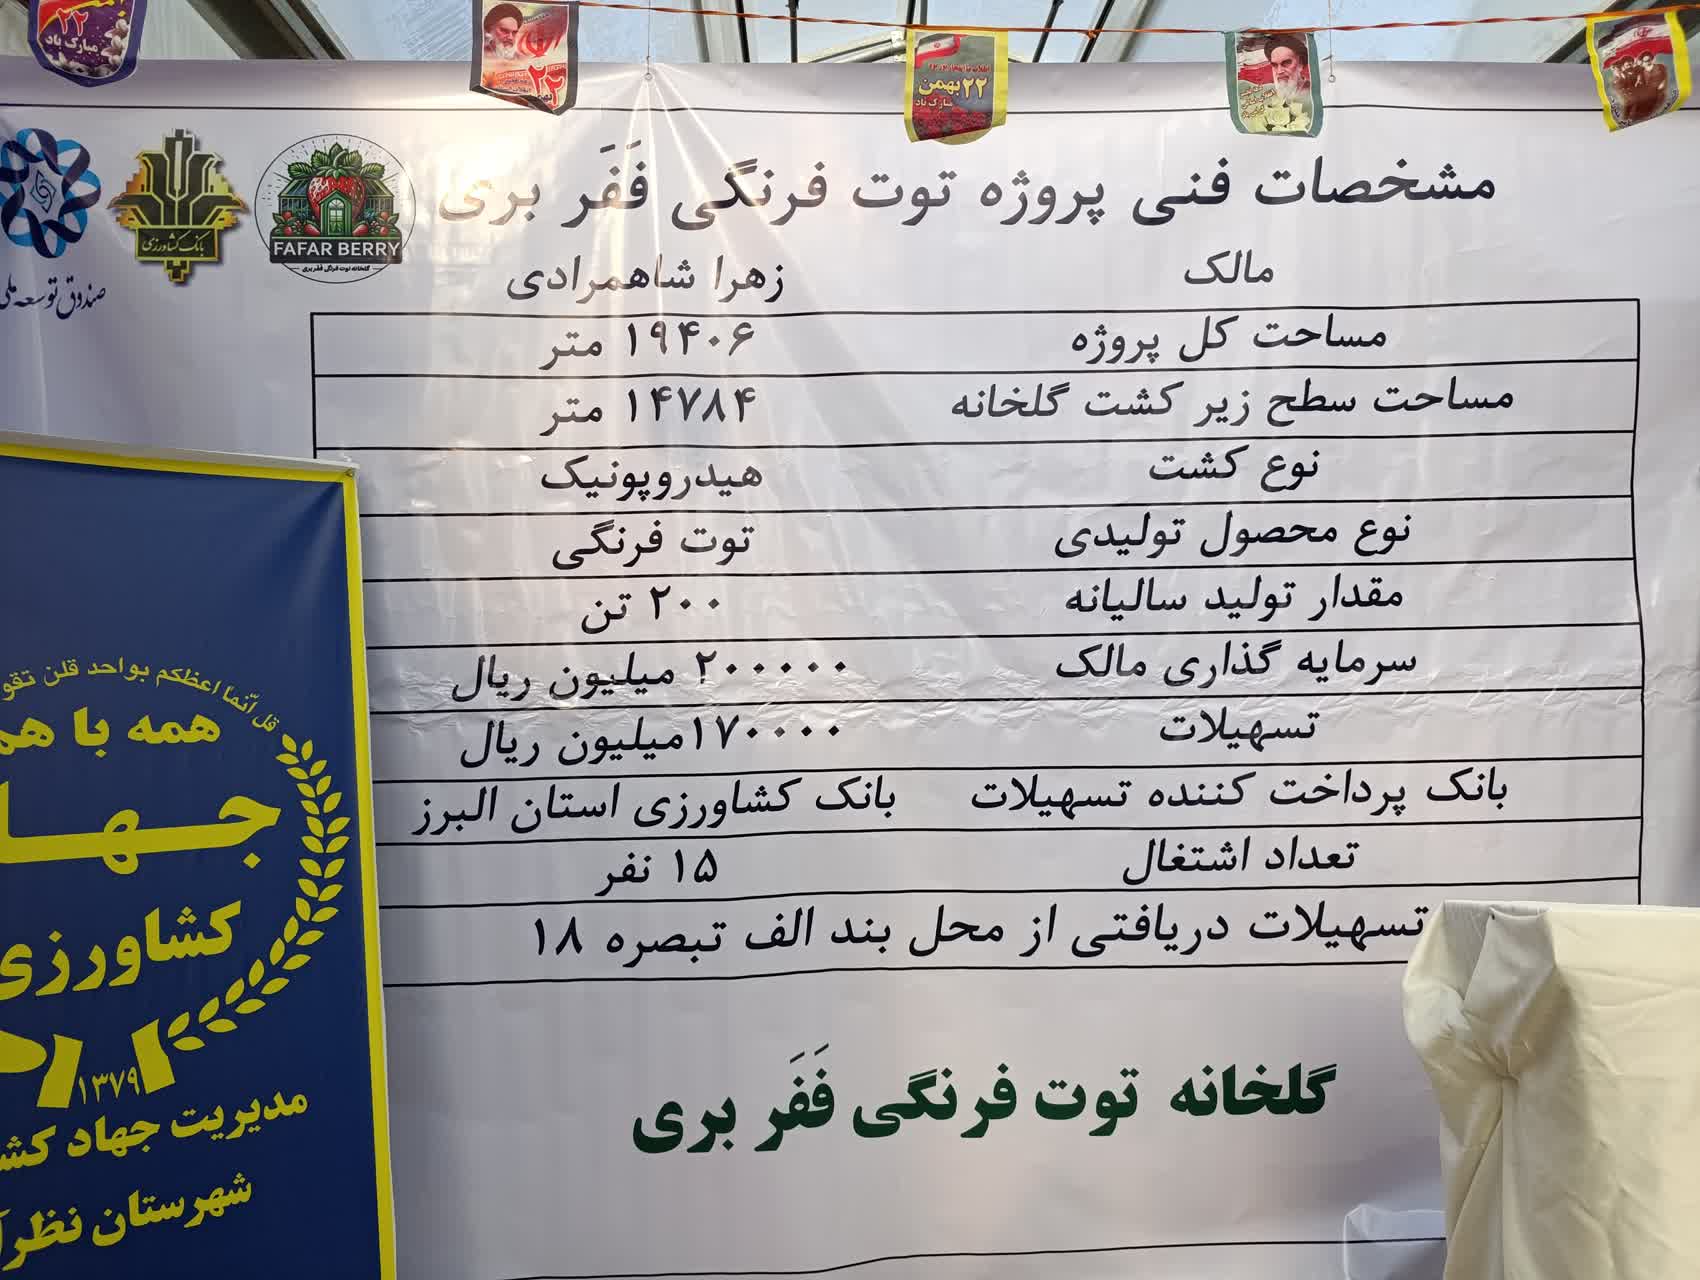 ۲۲
مبارک باد
۲۲
۲۲ بهمن
مبارک باد
مشخصات فنی پروژه توت فرنگی فَفَر بری
FAFAR BERRY
گلخانه توت فرنگی ففر بری
بانک کشاورزی
صندوق توسعه ملی
مالک زهرا شاهمرادی
مساحت کل پروژه ۱۹۴۰۶ متر
مساحت سطح زیر کشت گلخانه ۱۴۷۸۴ متر
نوع کشت هیدروپونیک
نوع محصول تولیدی توت فرنگی
مقدار تولید سالیانه ۲۰۰ تن
سرمایه گذاری مالک ۲۰۰۰۰۰ میلیون ریال
تسهیلات ۱۷۰۰۰۰میلیون ریال
بانک پرداخت کننده تسهیلات بانک کشاورزی استان البرز
تعداد اشتغال ۱۵ نفر
تسهیلات دریافتی از محل بند الف تبصره ۱۸
گلخانه توت فرنگی فَفَر بری
قل انّما اعظکم بواحد قلن تقو
همه با هم
جها
کشاورزی
۱۳۷۹
مدیریت جهاد کش
شهرستان نظرآ